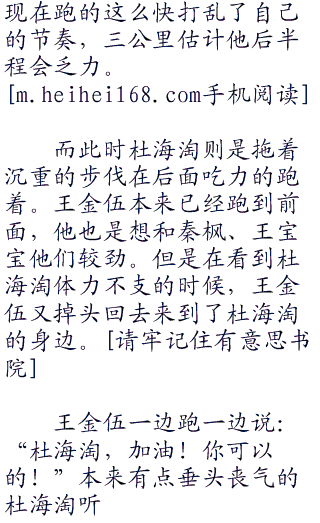 现在跑的这么快打乱了自己
的节奏，三公里估计他后半
程会乏力。
[m.heihei168.com手机阅读]
而此时杜海淘则是拖着
沉重的步伐在后面吃力的跑
着。王金伍本来已经跑到前
面，他也是想和秦枫、王宝
宝他们较劲。但是在看到杜
海淘体力不支的时候，王金
伍又掉头回去来到了杜海淘
的身边。[请牢记住有意思书
院]
王金伍一边跑一边说：
“杜海淘，加油！你可以
的！”本来有点垂头丧气的
杜海淘听